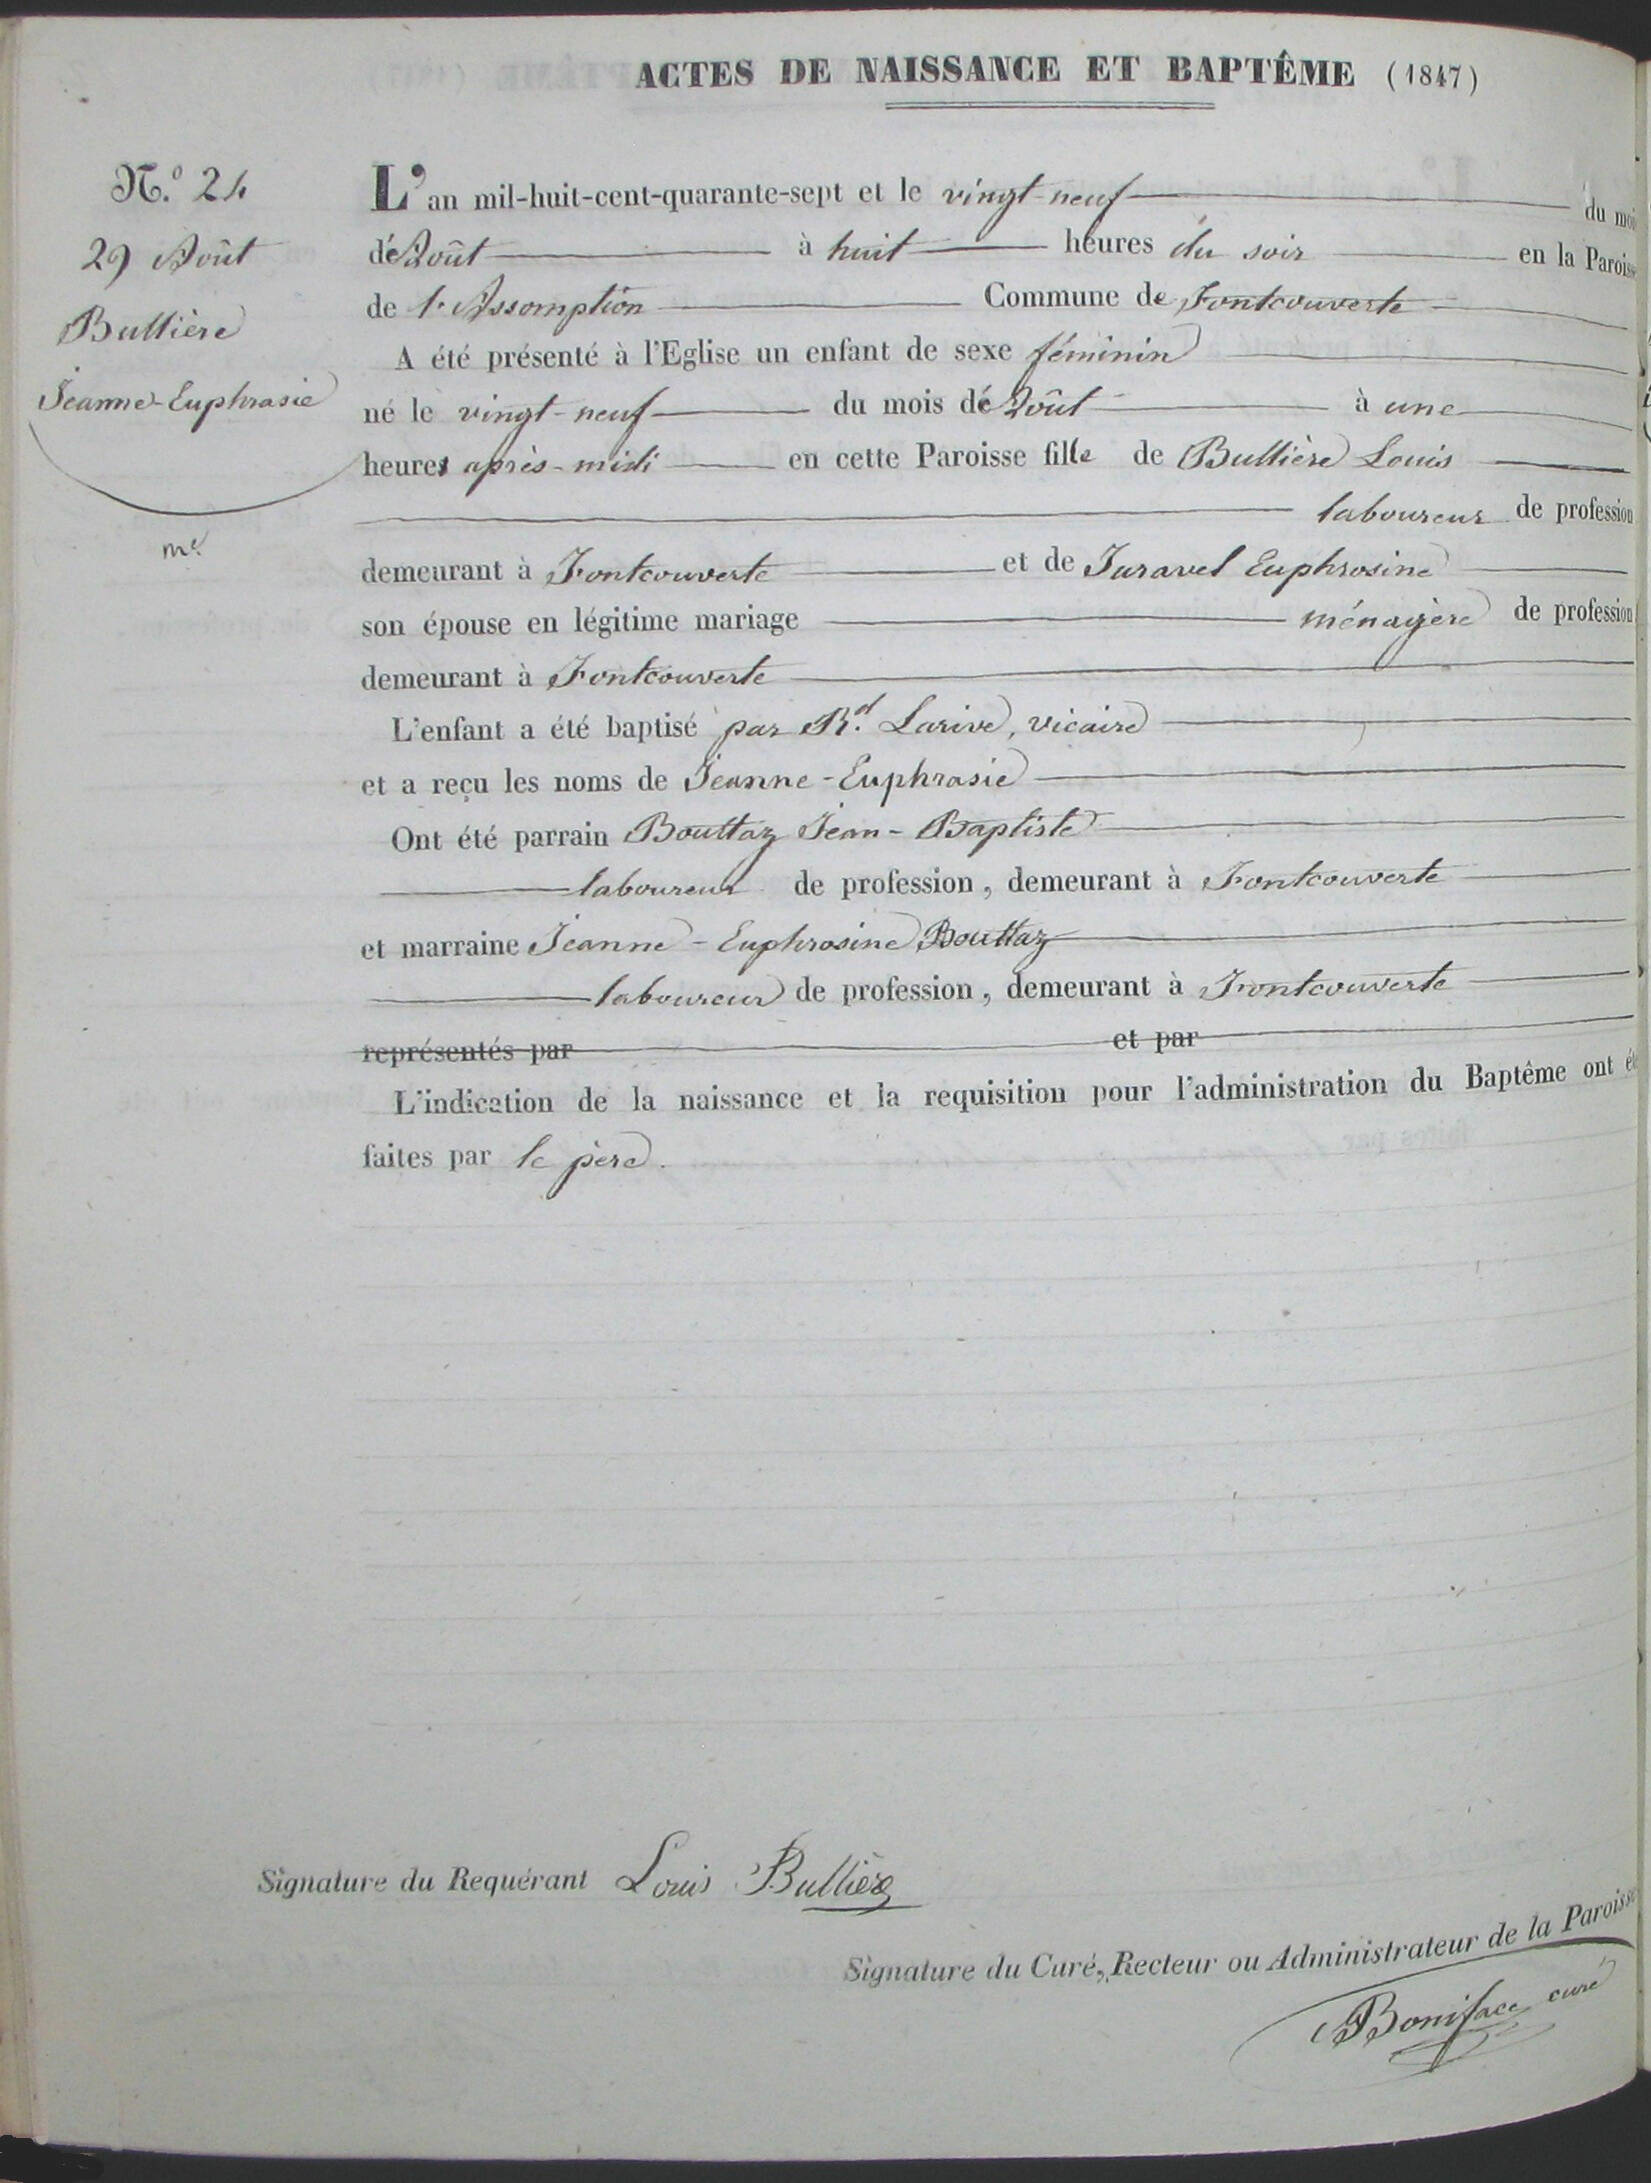 ACTES DE NAISSANCE ET BAPTÊME (1847)
N.o 24
29 Août
Bullière
Jeanne-Euphrasie
me.
L'an mil-huit-cent-quarante-sept et le vingt-neuf du mois
dé Août à huit heures du soir en la Paroisse
de l'Assomption Commune de Fontcouverte
A été présenté à l'Eglise un enfant de sexe féminin
né le vingt-neuf du mois dé Août à une
heures après-midi en cette Paroisse fille de Bullière Louis
laboureur de profession
demeurant à Fontcouverte et de Juravel Euphrosine
son épouse en légitime mariage ménagère de profession
demeurant à Fontcouverte
L'enfant a été baptisé par Rd. Larive, vicaire
et a reçu les noms de Jeanne-Euphrasie
Ont été parrain Bouttaz Jean-Baptiste
laboureur de profession, demeurant à Fontcouverte
et marraine Jeanne-Euphrosine Bouttaz
laboureur de profession, demeurant à Fontcouverte
représentés par et par
L'indication de la naissance et la requisition pour l'administration du Baptême ont été
faites par le père.
Signature du Requérant Louis Bullière
Signature du Curé, Recteur ou Administrateur de la Paroisse
Boniface curé